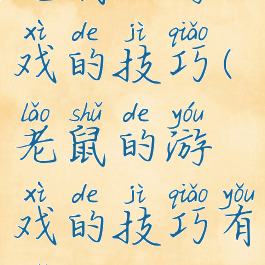 xì de jì qiǎo
戏的技巧(
lǎo shǔ de yóu
老鼠的游
xì de jì qiǎo yǒu
戏的技巧有